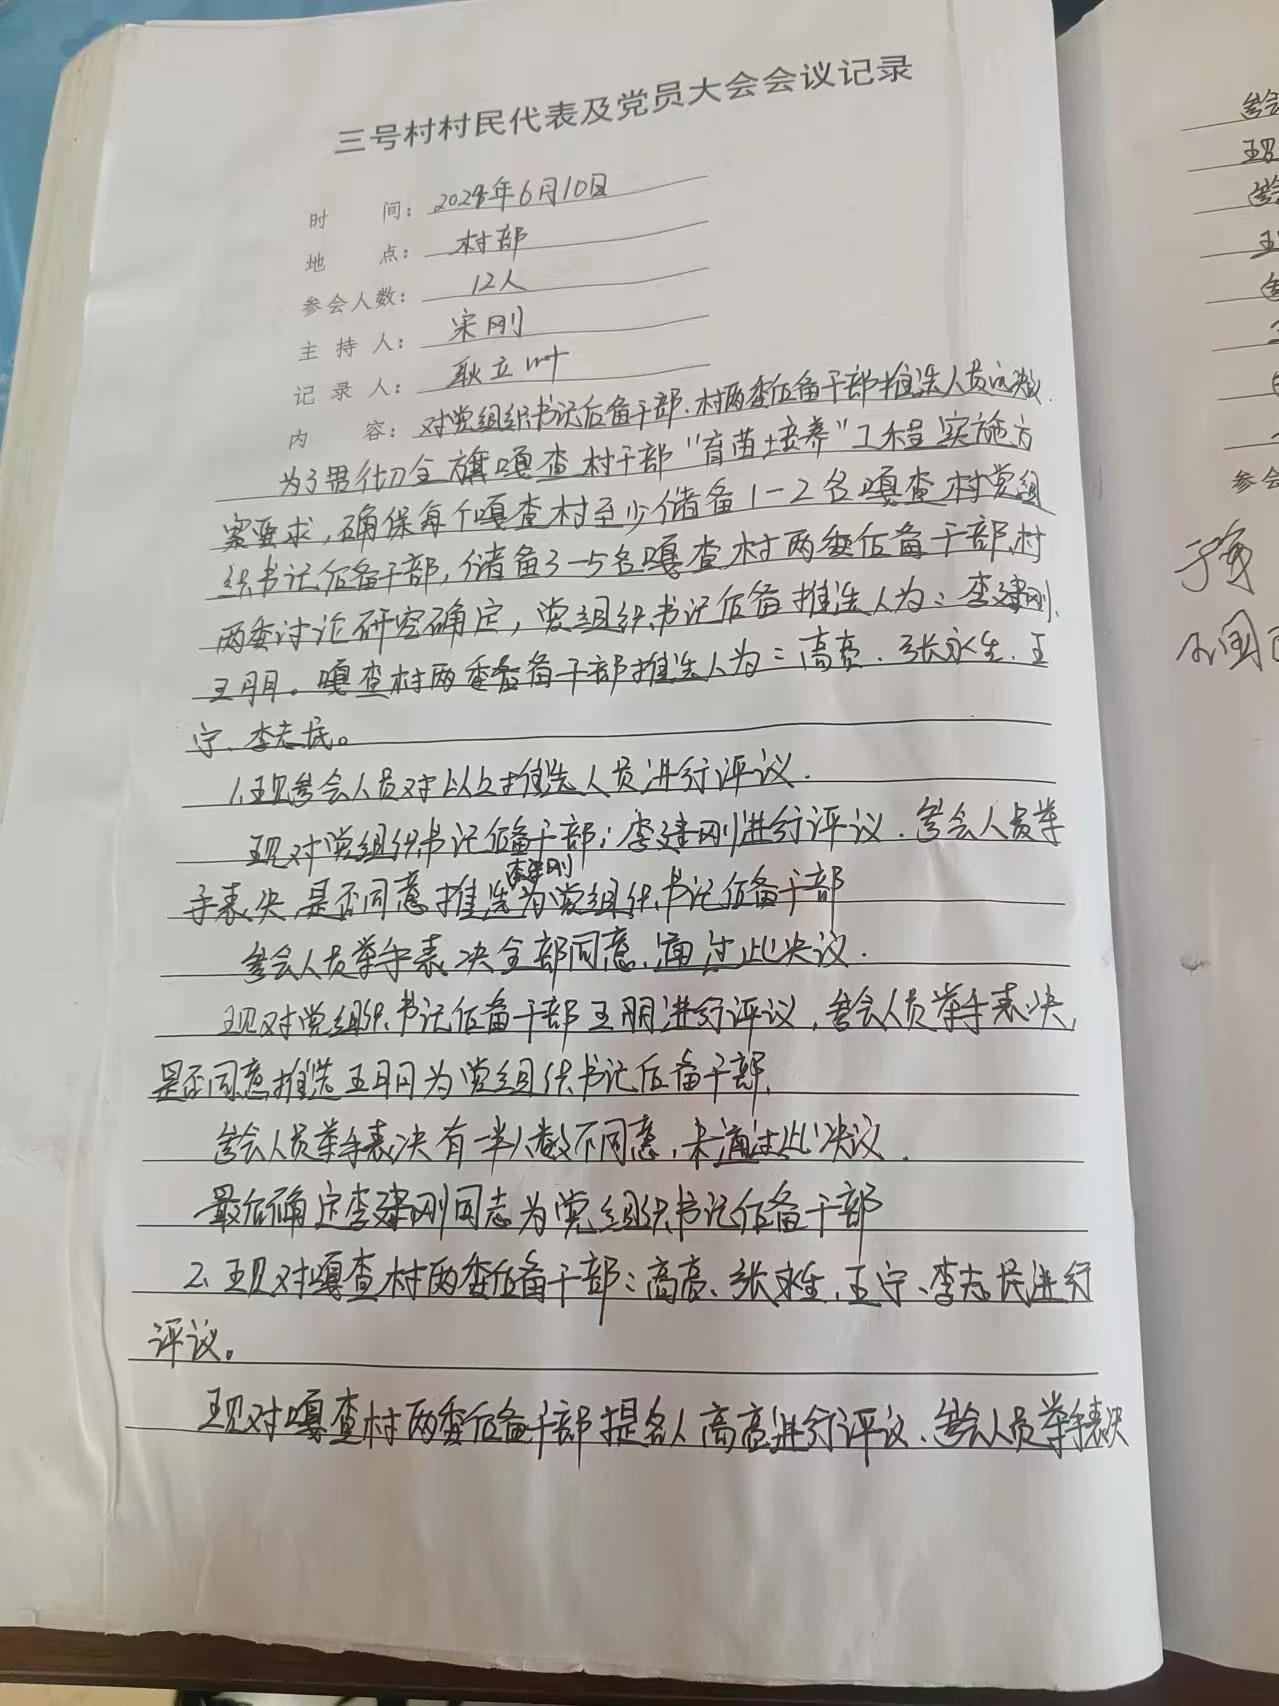 三号村村民代表及党员大会会议记录
时 间：2024年6月10日
地 点：村部
参会人数：12人
主 持 人：宋刚
记 录 人：耿立
内 容：对党组织书记后备干部、村两委后备干部推选人员
为了贯彻全旗嘎查村干部“育苗培养”工程实施方
案要求，确保每个嘎查村至少储备1-2名嘎查村党组
织书记后备干部，储备3-5名嘎查村两委后备干部，村
两委讨论研究确定，党组织书记后备推选人为：李建刚、
王朋。嘎查村两委后备干部推选人为：高亮、张永生、王
宁、李志民。
1、现参会人员对以上推选人员进行评议．
现对党组织书记后备干部：李建刚进行评议．参会人员举
李建刚
手表决，是否同意推选为党组织书记后备干部
参会人员举手表决全部同意，通过此决议．
现对党组织书记后备干部王朋进行评议，参会人员举手表决，
是否同意推选王朋为党组织书记后备干部．
参会人员举手表决有一半人数不同意，未通过此决议．
最后确定李建刚同志为党组织书记后备干部
2、现对嘎查村两委后备干部：高亮、张永生、王宁、李志民进行
评议。
现对嘎查村两委后备干部提名人高亮进行评议、参会人员举手表决
参会
现
参
王
参会